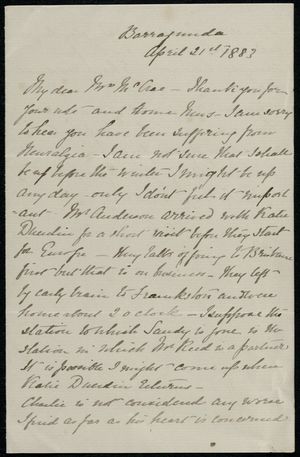 Barragunda
April 21st 1883
My dear Mrs McCrae - Thank you for
your note and Home News - I am sorry
to hear you have been suffering from
Neuralgia - I am not sure that I shall
be up before the winter I might be up
any day - only I don't feel it import
ant - Mr Anderson arrived with Katie
Duerdin for a short visit before they start
for Europe - they talk of going to Brisbane
first but that is on business - They left
by early train to Frankston and were
home about 2 o'clock - I suppose the
station to which Sandy is gone is the
station in which Mr Reid is a partner
It is possible I might come up when
Katie Duerdin returns -
Charlie is not considered any worse
I find as far as his heart is concerned